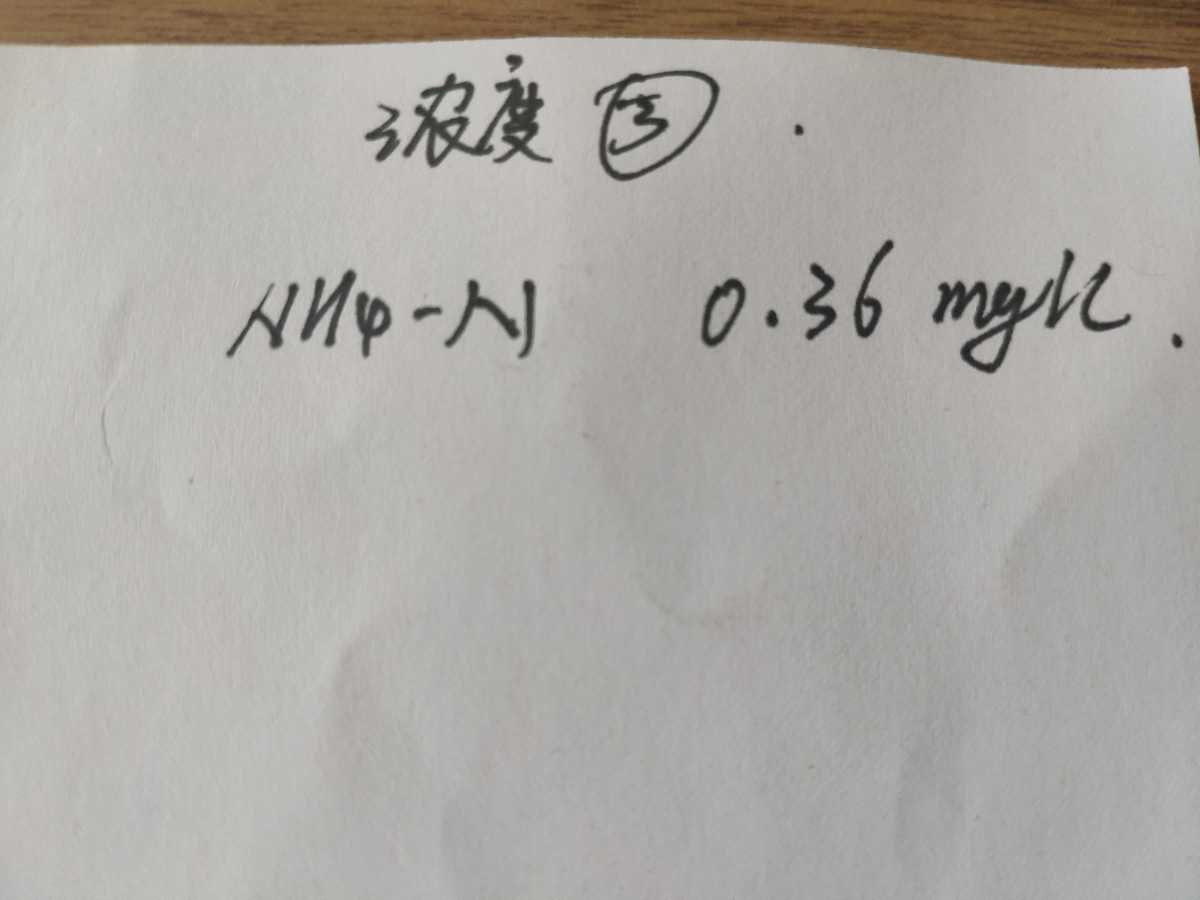 浓度 ③.
NH4-N 0.36 mg/L.